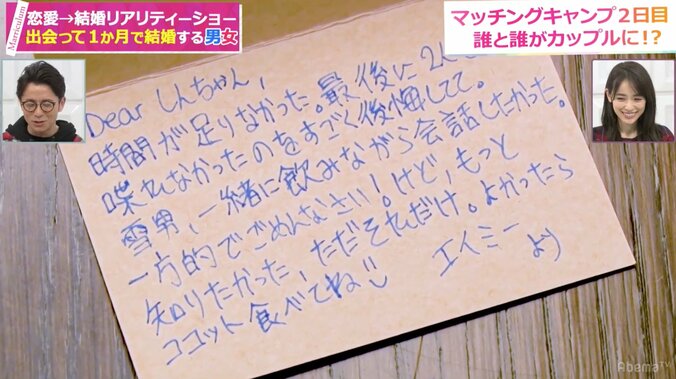 Marriculum
恋愛→結婚リアリティーショー
出会って1か月で結婚する男女
マッチングキャンプ2日目
誰と誰がカップルに!?
Dear しんちゃん,
時間が足りなかった。最後に2人で
喋れなかったのをすごく後悔してて。
雪男、一緒に飲みながら会話したかった。
一方的でごめんなさい!けど,もっと
知りたかった,ただそれだけ。よかったら
ココット食べてね
エイミー
より
AbemaTV